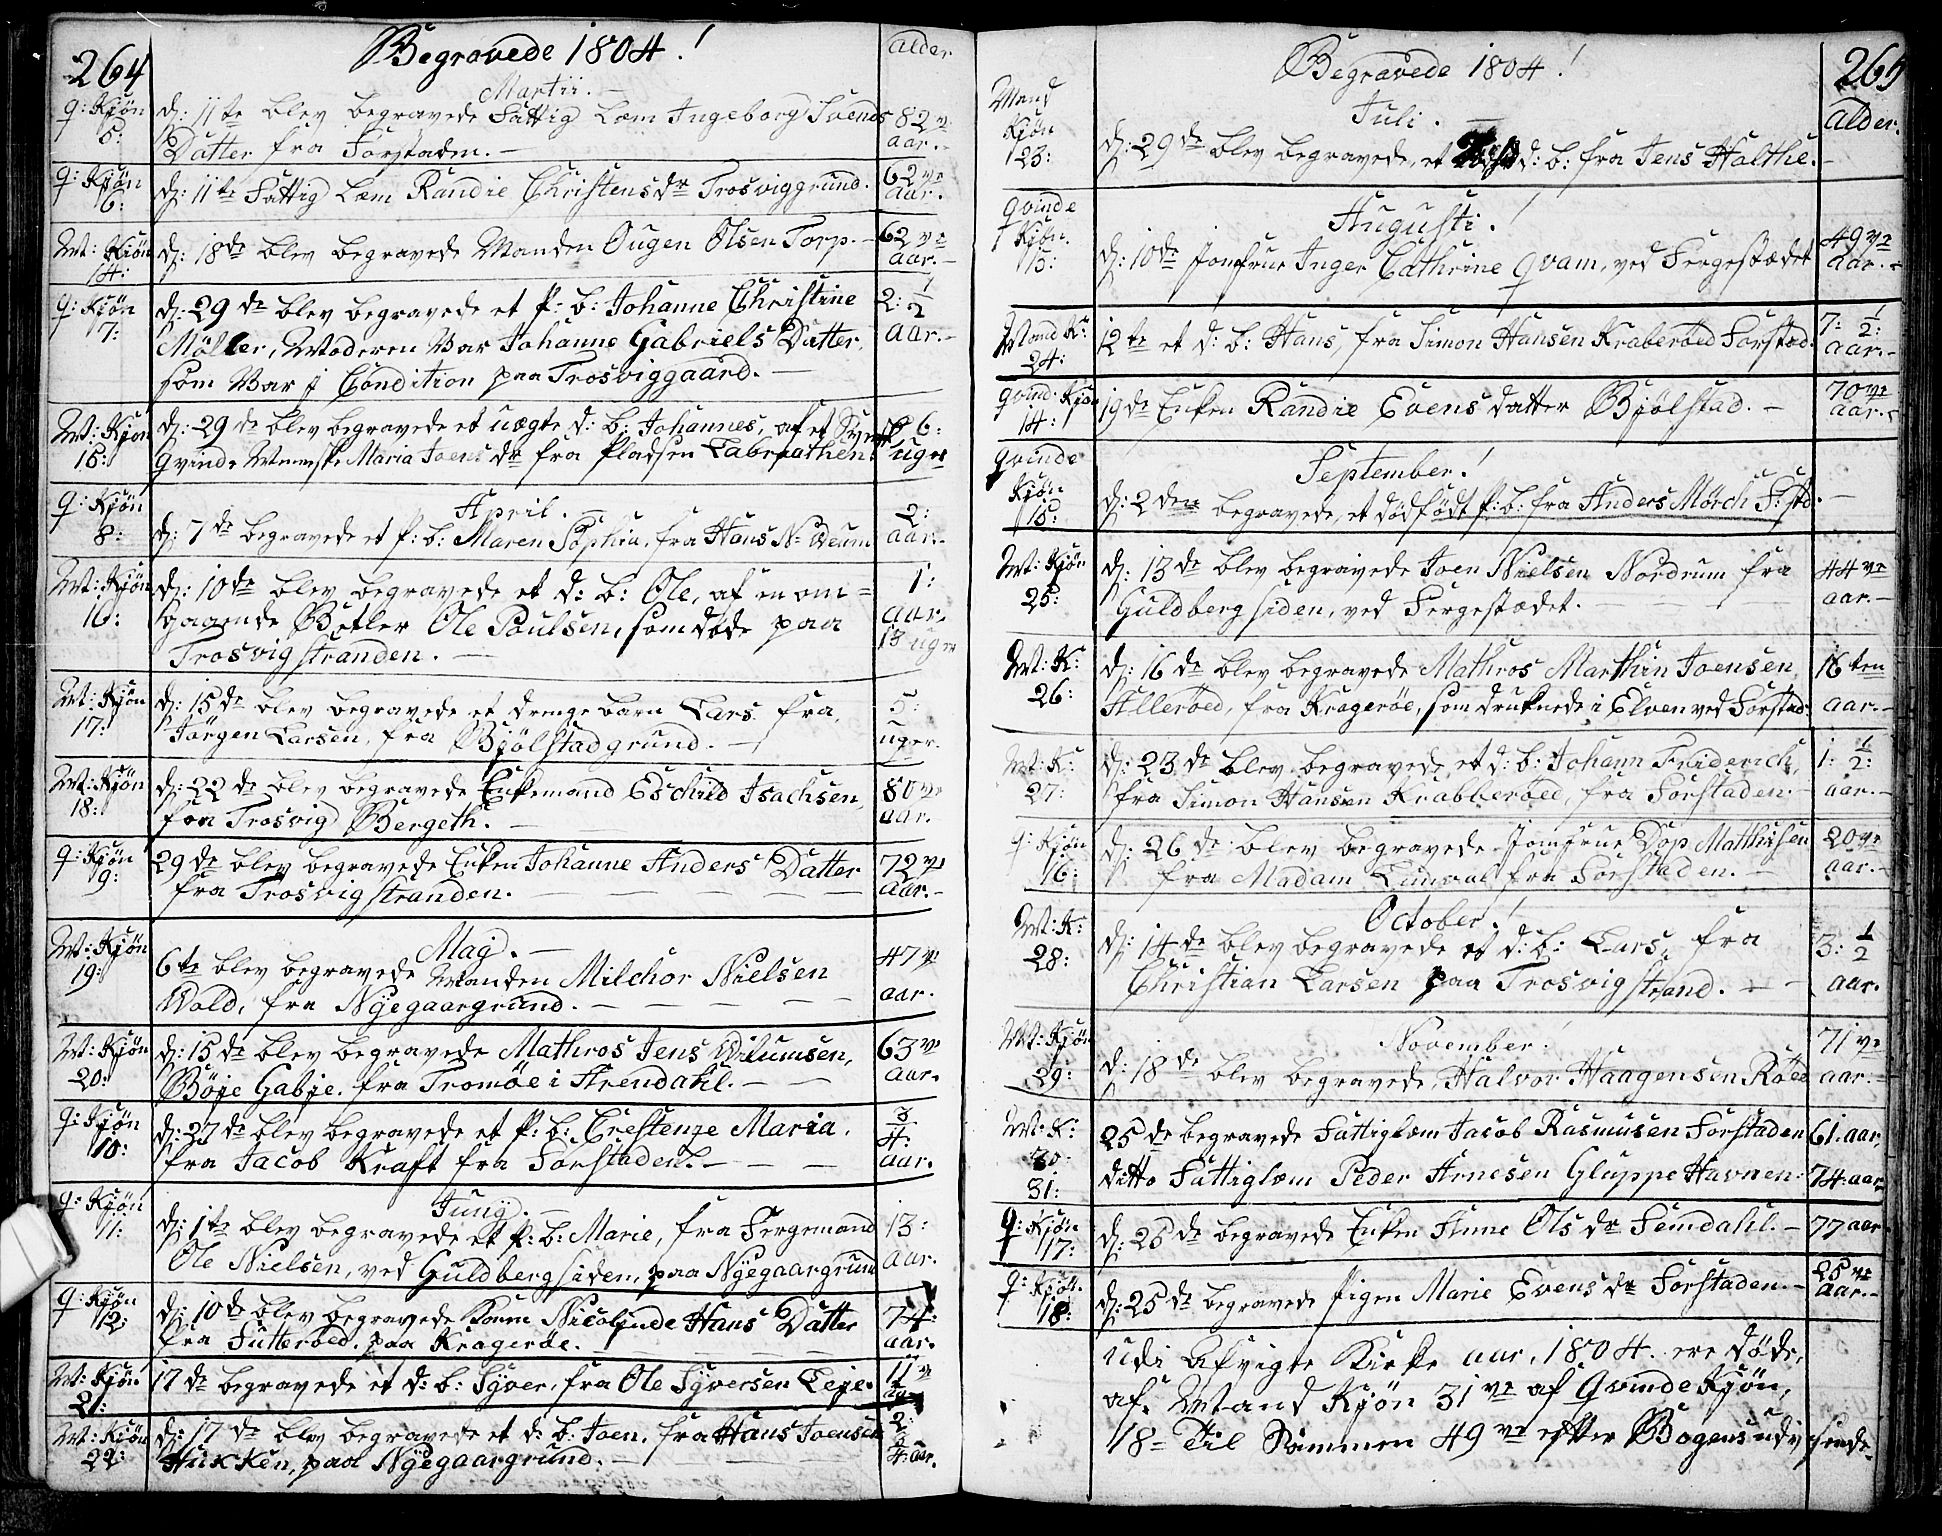 264
Begravede 1804!
Alder
Martii.
q: Kjön
5:
d: 11te blev begravede Fattig Lem Ingeborg Svends
Datter fra Forstaden.
82ve
aar.
q: Kjön
6:
d: 11te Fattig Lem Randie Christensdr Trosviggrund.
62ve
aar.
M: Kjön
14:
d: 18de blev begravede Manden Ougen Olsen Torp.
62ve
aar.
q: Kjön
7:
d: 29de blev begravede et p: b: Johanne Christine
Möller, Moderen Var Johanne Gabriels Datter,
som Var i Condition paa Trosviggaard.
2: 1/2
aar.
M: Kjön
15:
d: 29de blev begravede et uægte d: b: Johannes, af et
qvinde Menneske Maria Joens dr fra Pladsen
6:
uger
April.
q: Kjön
8:
d: 7de begravede et p: b: Maren Sophia, fra Hans N:
2:
aar.
M: Kjön
16:
d: 10de blev begravede et d: b: Ole, af en om=
gaaende Betler Ole Poulsen, som döde paa
Trosvigstranden.
1:
aar.
13 uger
M: Kjön
17:
d: 15de blev begravede et drengebarn Lars fra
Jörgen Larsen, fra Bjölstadgrund.
5:
uger.
M: Kjön
18:
d: 22de blev begravede Enkemand Eschild Isachsen,
fra Trosvig Bergeth.
80ve
aar.
q: Kjön
9:
29de blev begravede Enken Johanne Anders Datter
fra Trosvigstranden.
72ve
aar.
Maj.
M: Kjön
19:
6te blev begravede Manden Milchor Nielsen
Wold, fra Nyegaargrund.
47ve
aar.
M: Kjön
20:
d: 15de blev begravede Mathros Jens Wilumsen,
Böje Gabje. fra Tromöe i Arendahl.
63ve
aar.
q: Kjön
10:
d: 27de blev begravede et p: b: Crestenze Maria.
fra Jacob Kraft fra Forstaden.
3/4:
aar.
Junij.
q: Kjön
11:
d: 1te blev begravede et p: b: Marie, fra Fergemand
Ole Nielsen, ved Guldbergsiden, paa Nyegaargrund
13:
aar.
q: Kjön
12:
d: 10de blev begravede Konen Nicolinde Hans Datter
fra Sutteröed. paa Krageröe.
74:
aar.
M: Kjön
21:
17de begravede et d: b: Syver, fra Ole Syversen Leje.
11
M: Kjön
22:
d: 17de blev begravede et d: b: Joen. fra Hans Joensen
Hukken, paa Nyegaargrund.
2:
aar.
265
Begravede 1804!
Alder.
Juli.
Mand
Kjön
23:
d: 29de blev begravede, et d: b: fra Jens Holthe.
Augusti!
qvinde
Kjön.
13:
d: 10de Jomfrue Inger Cathrine Qvam, ved Fergestædet
49ve
aar.
Mand K:
24:
12te et d: b: Hans, fra Simon Hansen Kraberöed Forstad.
7: 1/2:
aar.
qvind: Kjön
14:
19de Enken Randie Evens datter Bjölstad.
70ve
aar.
September!
qvinde
Kjön
15:
d: 2den begravede, et dödfödt p: b: fra Anders Mörch F: std.
M: Kjön
25:
d: 13de blev begravede Joen Nielsen Nordrum fra
Guldbergsiden, ved Fergestædet.
44ve
aar.
M: K:
26:
d: 16de blev begravede Mathros Marthin Joensen
Alleröed, fra Kragerøe, som druknede i Elven ved Forstad:
16ten
aar.
M: K:
27:
d: 23de blev begravede et d: b: Johann Friderich,
fra Simon Hansen Krabberöed, fra Forstaden.
1: 1/2:
aar.
q: Kjön
16:
d: 26de blev begravede Jomfrue Dop Matthisen
fra Madam fra Forstaden.
20ve
aar.
October!
M: K:
28:
d: 14de blev begravede et d: b: Lars, fra
Christian Larsen paa Trosvigstrand.
3: 1/2
aar.
November!
M: Kjön
29:
d: 18de blev begravede, Halvor Haagensen Röed
71ve
aar.
M: K:
30:
25de begravede Fattiglem Jacob Rasmusen Forstaden
61. aar,
31:
ditto Fattiglem Peder Arnesen Gluppe Havnen:
74. aar
q: Kjön
17:
d: 25de begravede Enken Anne Ols dr Femdahl.
77 aar.
q: Kjön.
18:
d: 25de begravede pigen Marie Evens dr Forstaden.
25ve
aar.
udi Afvigte Kirke aar, 1804. ere döde,
af Mand Kjön 31ve af Qvinde Kjön,
18= Til Sammen 49ve efter Bogens udvisende.